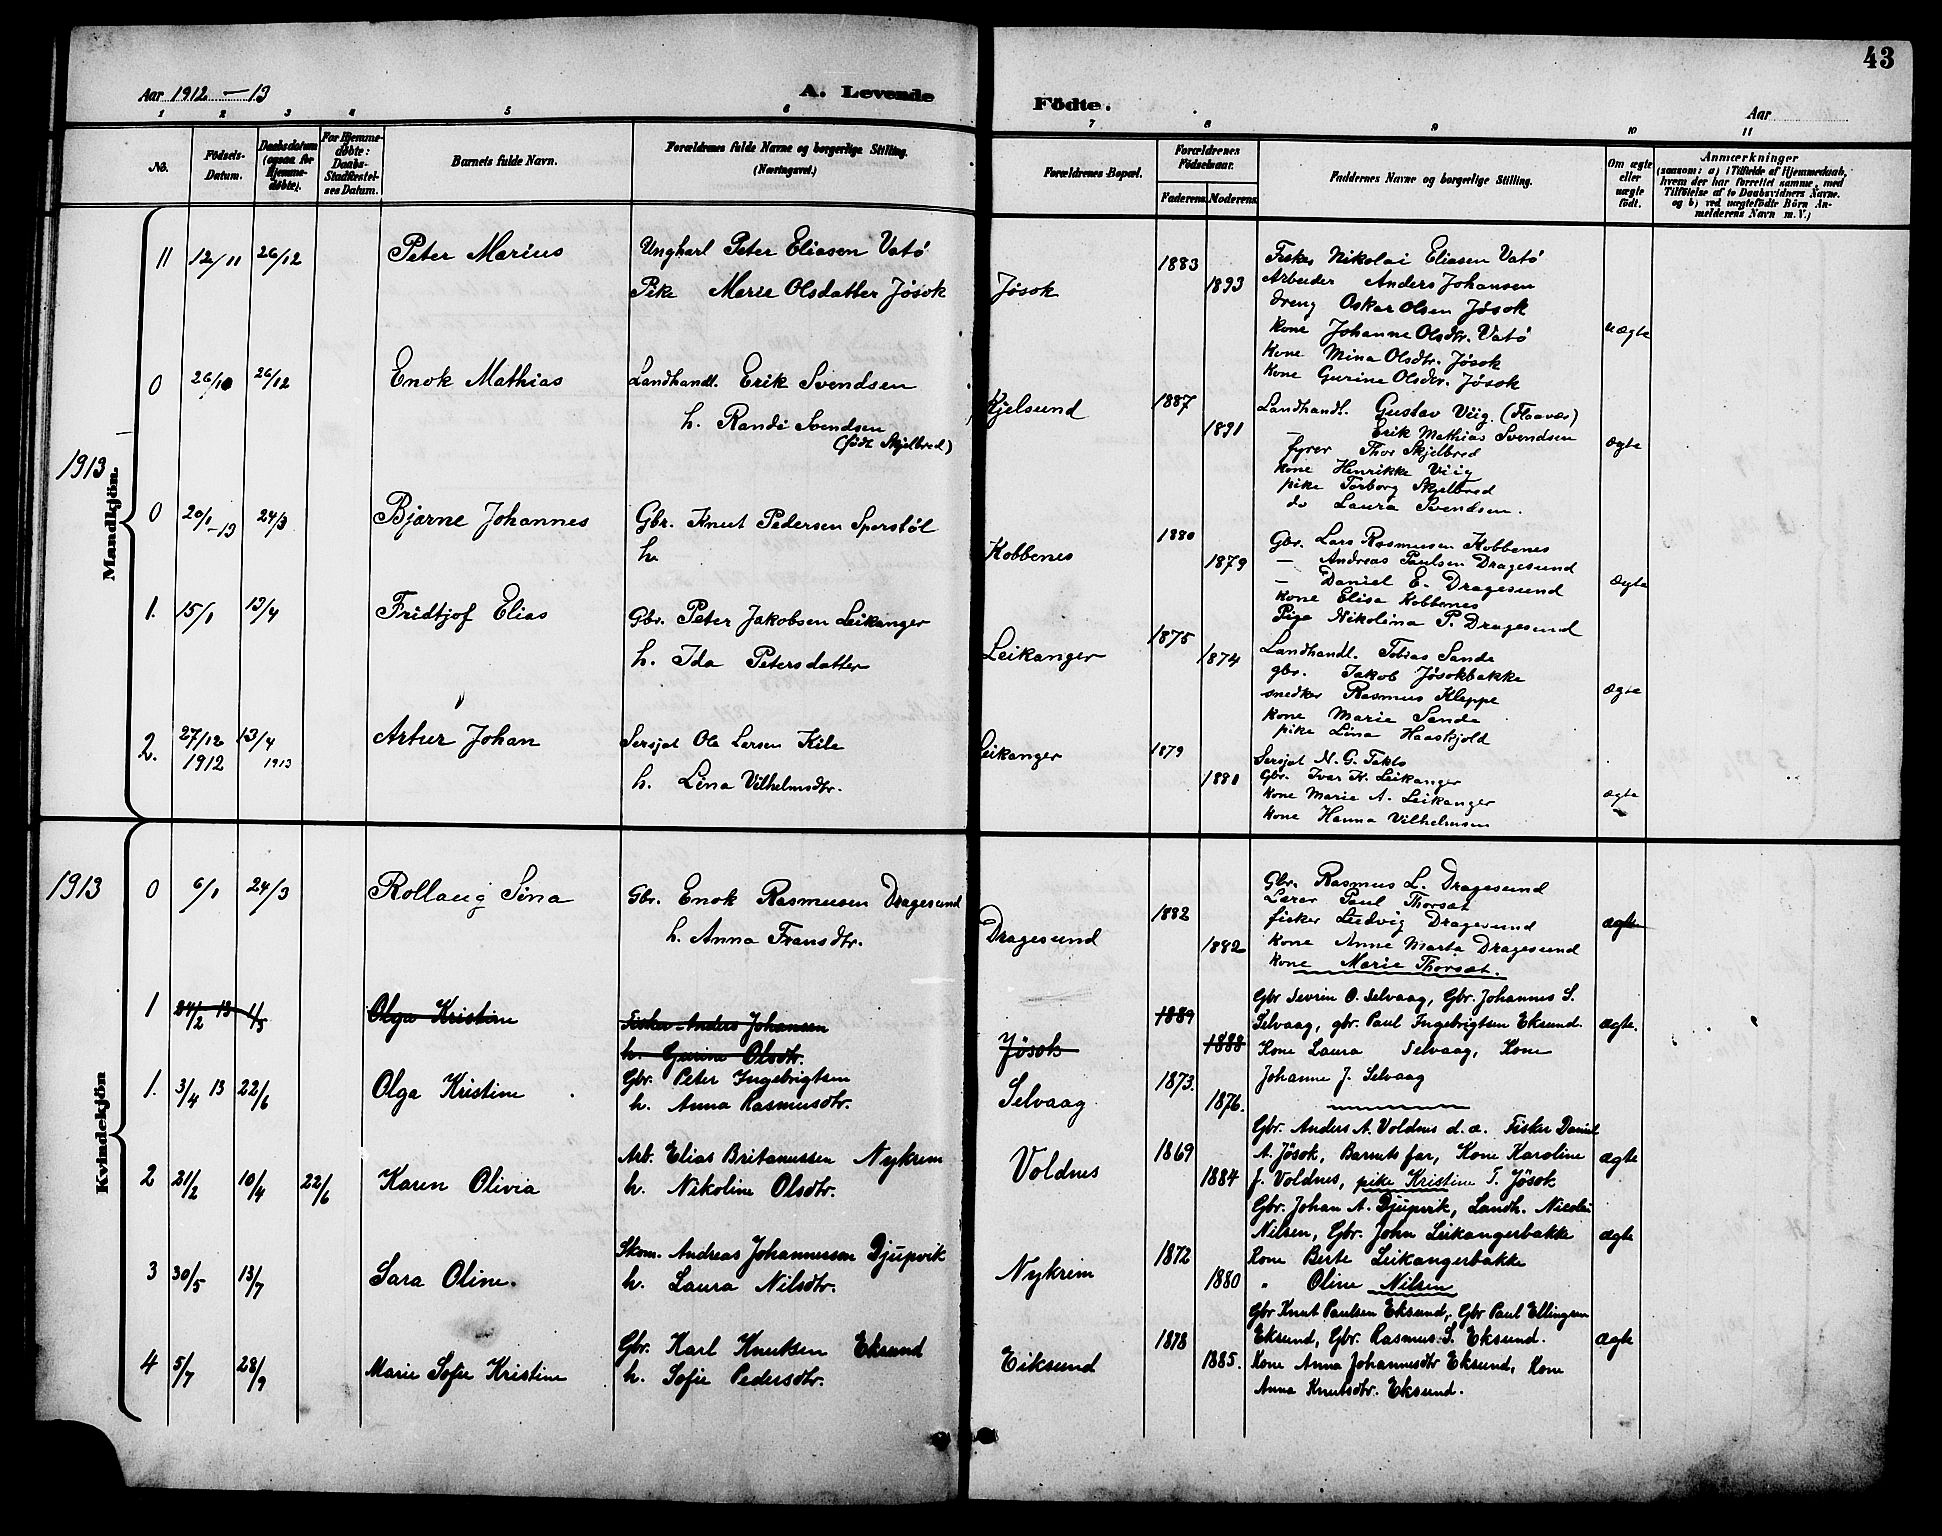 43
Aar 1912 - 13
A. Levende
Födte.
Aar
1 2 3 4 5 6 7 8 9 10 11
No.
Födsels-Datum.
Daabsdatum (ogsaa for Hjemmedöbte).
For Hjemmedöbte: Daabs-Stadfæstelses Datum.
Barnets fulde Navn.
Forældrenes fulde Navne og borgerlige Stilling.
(Næringsvei.)
Forældrenes Bopæl.
Forældrenes Födselsaar.
Faderens. Moderens.
Faddernes Navne og borgerlige Stilling.
Om ægte eller uægte födt.
Anmærkninger
(saasom: a) i Tilfælde af Hjemmedaab,
hvem der har forrettet samme, med
Tilföielse af to Daabsvidners Navne.
og b) ved uægtefödte Börn An-
melderens Navn m. V.)
1913
Mandkjön.
11 12/11 26/12 Peter Marius
Ungkarl Peter Eliasen Vatö
Pike Marie Olsdatter Jøsok
Jøsok 1883 1893
Fisker Nikolai Eliasen Vatö
Arbeider Anders Johansen
dreng Oskar Olsen Jøsok
kone Johanne Olsdtr. Vatö
kone Mina Olsdtr. Jøsok
kone Gurine Olsdtr. Jøsok
uægte
0 26/10 26/12 Enok Mathias
Landhandl. Erik Svendsen
h. Randi Svendsen
(født Skjelbred)
Kjelsund 1887 1891
Landhandl. Gustav Viig. (Flaavær)
– Erik Mathias Svendsen
fyrer Thor Skjelbred
kone Henrikke Viig
pike Torborg Skjelbred
do Laura Svendsen.
ægte
0 20/1 -13 24/3 Bjarne Johannes
Gbr. Knut Pedersen Sporstøl
h.
Kobbenes 1880 1879
Gbr. Lars Rasmusen Kobbenes
— Andreas Paulsen Dragesund
— Daniel E. Dragesund
kone Elisa Kobbenes
Pige Nikolina P. Dragesund
ægte
1. 15/1 13/4 Fridtjof Elias
Gbr. Peter Jakobsen Leikanger
h. Ida Petersdatter
Leikanger 1875 1874
Landhandl. Tobias Sande
gbr. Jakob Jøsokbakke
snedker Rasmus Kleppe
kone Marie Sande
pike Lina Haaskjold
ægte
2. 27/12 1912 13/4 1913 Artur Johan
Sersjat Ola Larsen Kile
h. Lina Vilhelmsdtr.
Leikanger 1879 1881
Sersjat N. G. Takts
Gbr. Ivar K. Leikanger
kone Marie A. Leikanger
kone Hanna Vilhelmsen
ægte
1913
Kvindekjön
0 6/1 24/3 Rollaug Sina
Gbr. Enok Rasmusen Dragesund
h. Anna Fransdtr.
Dragesund 1882 1882
Gbr. Rasmus L. Dragesund
Lærer Paul Thorsæt
fisker Ludvig Dragesund
kone Anne Marta Dragesund
kone Marie Thorsæt.
ægte
1 24/2 13 1/5 Olga Kristine
Fisker Anders Johansen
h. Gurine Olsdtr.
Jøsok 1889 1888
Gbr Sevrin O. Selvaag, Gbr. Johannes S.
Selvaag, gbr. Paul Ingebrigtsen Eksund.
Kone Laura Selvaag, Kone
Johanne J. Selvaag
ægte.
1. 3/4 13 22/6 Olga Kristine
Gbr. Peter Ingebrigtsen
h. Anna Rasmusdtr.
Selvaag 1873. 1876.
2 21/2 10/4 22/6 Karen Olivia
Arb. Elias Britanussen Nykrem
h. Nikoline Olsdtr.
Voldnes 1869 1884
Gbr. Anders A. Voldnes d.æ. Fisker Daniel
A. Jøsok, Barnets far, Kone Karoline
J. Voldnes, pike Kristine T. Jøsok
ægte
3 30/5 13/7 Sara Oline.
Skom. Andreas Johannessen Djupvik
h. Laura Nilsdtr.
Nykrem 1872 1880
Gbr. Johan A. Djupvik, Landh. Nicolai
Nilsen, Gbr. John Leikangerbakke
Kone Berte Leikangerbakke
" Oline Nilsen
ægte
4 5/7 28/9 Marie Sofie Kristine
Gbr. Karl Knutsen Eksund
h. Sofie Pedersdtr.
Eiksund 1878 1885.
Gbr Knut Paulsen Eksund, Gbr Paul Ellingsen
Eksund, Gbr. Rasmus S. Eksund.
Kone Anna Johannesdtr Eksund, Kone
Anna Knutsdtr. Eksund.
ægte